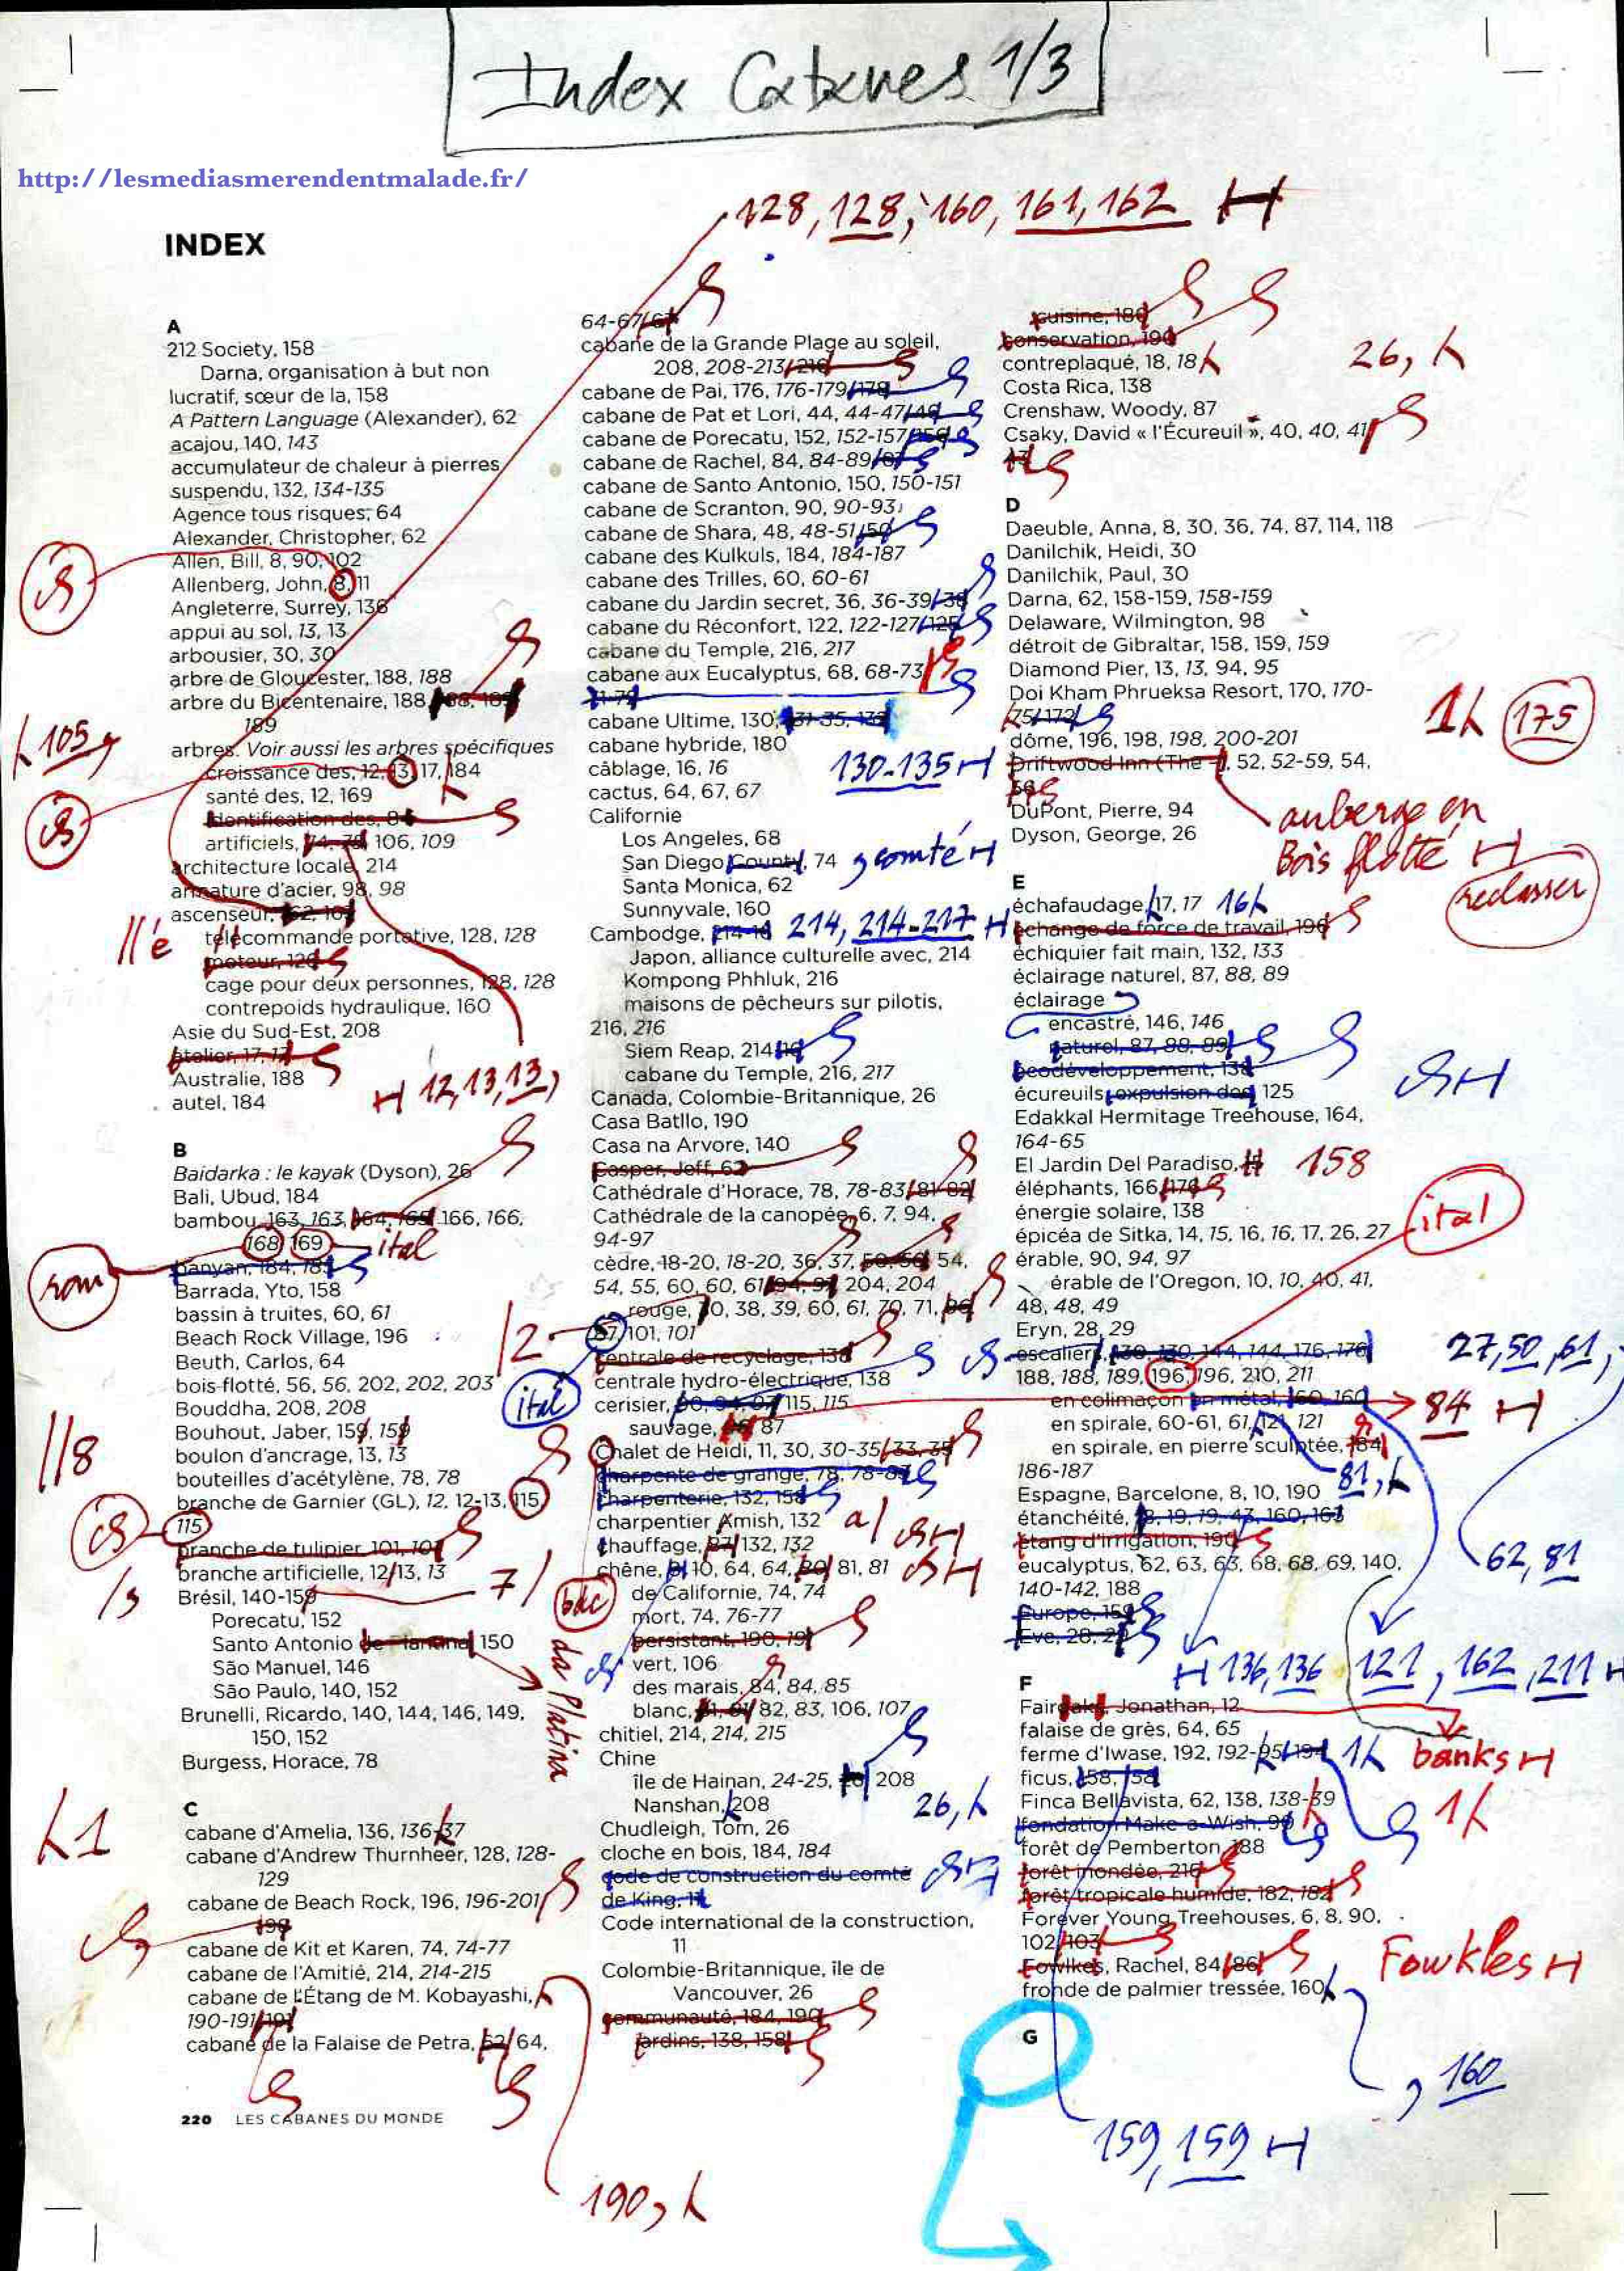 Index Cabanes 1/3
http://lesmediasmerendentmalade.fr/
128, 128, 160, 161, 162 H
INDEX
A
212 Society, 158
Darna, organisation à but non
lucratif, sœur de la, 158
A Pattern Language (Alexander), 62
acajou, 140, 143
accumulateur de chaleur à pierres
suspendu, 132, 134-135
Agence tous risques, 64
Alexander, Christopher, 62
Allen, Bill, 8, 90, 102
Allenberg, John, 8, 11
Angleterre, Surrey, 136
appui au sol, 13, 13
arbousier, 30, 30
arbre de Gloucester, 188, 188
arbre du Bicentenaire, 188,
189
105
arbres. Voir aussi les arbres spécifiques
croissance des, 12, 13, 17, 184
santé des, 12, 169
identification des, 84
artificiels, 74, 75, 106, 109
architecture locale, 214
armature d'acier, 98, 98
ascenseur,
//é
télécommande portative, 128, 128
moteur, 128
cage pour deux personnes, 128, 128
contrepoids hydraulique, 160
Asie du Sud-Est, 208
atelier, 17, 17
Australie, 188
autel, 184
H 12, 13, 13,
B
Baidarka : le kayak (Dyson), 26
Bali, Ubud, 184
bambou, 163, 163, 164, 165, 166, 166,
168, 169
ital
rom
banyan, 184, 185
Barrada, Yto, 158
bassin à truites, 60, 61
Beach Rock Village, 196
Beuth, Carlos, 64
bois-flotté, 56, 56, 202, 202, 203
Bouddha, 208, 208
Bouhout, Jaber, 159, 159
//8
boulon d'ancrage, 13, 13
bouteilles d'acétylène, 78, 78
branche de Garnier (GL), 12, 12-13, 115,
115
branche de tulipier, 101, 101
branche artificielle, 12, 13, 13
Brésil, 140-159
7/
Porecatu, 152
Santo Antonio de Plantina, 150
da Platina
São Manuel, 146
São Paulo, 140, 152
Brunelli, Ricardo, 140, 144, 146, 149,
150, 152
Burgess, Horace, 78
C
cabane d'Amelia, 136, 136-37
cabane d'Andrew Thurnheer, 128, 128-
129
cabane de Beach Rock, 196, 196-201,
198
cabane de Kit et Karen, 74, 74-77
cabane de l'Amitié, 214, 214-215
cabane de L'Étang de M. Kobayashi,
190-191, 191
cabane de la Falaise de Petra, 62, 64,
190,
220 LES CABANES DU MONDE
64-67, 67
cabane de la Grande Plage au soleil,
208, 208-213, 210
cabane de Pai, 176, 176-179, 178
cabane de Pat et Lori, 44, 44-47, 46
cabane de Porecatu, 152, 152-157,
cabane de Rachel, 84, 84-89, 87
cabane de Santo Antonio, 150, 150-151
cabane de Scranton, 90, 90-93
cabane de Shara, 48, 48-51, 50
cabane des Kulkuls, 184, 184-187
cabane des Trilles, 60, 60-61
cabane du Jardin secret, 36, 36-39, 38
cabane du Réconfort, 122, 122-127, 125
cabane du Temple, 216, 217
cabane aux Eucalyptus, 68, 68-73,
71-72
cabane Ultime, 130, 131-35, 132
cabane hybride, 180
130-135 H
câblage, 16, 16
cactus, 64, 67, 67
Californie
Los Angeles, 68
San Diego County, 74
comté H
Santa Monica, 62
Sunnyvale, 160
Cambodge, 214-16
214, 214-217 H
Japon, alliance culturelle avec, 214
Kompong Phhluk, 216
maisons de pêcheurs sur pilotis,
216, 216
Siem Reap, 214
cabane du Temple, 216, 217
Canada, Colombie-Britannique, 26
Casa Batllo, 190
Casa na Arvore, 140
Casper, Jeff, 62
Cathédrale d'Horace, 78, 78-83, 81-82
Cathédrale de la canopée, 6, 7, 94,
94-97
cèdre, 18-20, 18-20, 36, 37, 50, 50, 54,
54, 55, 60, 60, 61, 94, 97, 204, 204
rouge, 70, 38, 39, 60, 61, 70, 71, 86,
87, 101, 101
/2
ital
centrale de recyclage, 138
centrale hydro-électrique, 138
cerisier, 90, 94, 97, 115, 115
sauvage, 87
Chalet de Heidi, 11, 30, 30-35, 33, 35
charpente de grange, 78, 78-83
charpenterie, 132, 158
charpentier Amish, 132
a/
chauffage, 87, 132, 132
chêne, 10, 64, 64, 80, 81, 81
bdc
de Californie, 74, 74
mort, 74, 76-77
persistant, 190, 191
vert, 106
des marais, 84, 84, 85
blanc, 82, 83, 106, 107
chitiel, 214, 214, 215
Chine
île de Hainan, 24-25, 208
Nanshan, 208
26,
Chudleigh, Tom, 26
cloche en bois, 184, 184
code de construction du comté
de King, 11
Code international de la construction,
11
Colombie-Britannique, île de
Vancouver, 26
communauté, 184, 190
jardins, 138, 158
cuisine, 180
conservation, 190
contreplaqué, 18, 18
26,
Costa Rica, 138
Crenshaw, Woody, 87
Csaky, David « l'Écureuil », 40, 40, 41,
43
D
Daeuble, Anna, 8, 30, 36, 74, 87, 114, 118
Danilchik, Heidi, 30
Danilchik, Paul, 30
Darna, 62, 158-159, 158-159
Delaware, Wilmington, 98
détroit de Gibraltar, 158, 159, 159
Diamond Pier, 13, 13, 94, 95
Doi Kham Phrueksa Resort, 170, 170-
75, 172
175
dôme, 196, 198, 198, 200-201
Driftwood Inn (The), 52, 52-59, 54,
56
auberge en
Bois flotté H
reclasser
DuPont, Pierre, 94
Dyson, George, 26
E
échafaudage, 17, 17
16
échange de force de travail, 196
échiquier fait main, 132, 133
éclairage naturel, 87, 88, 89
éclairage
encastré, 146, 146
naturel, 87, 88, 89
écodéveloppement, 138
écureuils, expulsion des, 125
Edakkal Hermitage Treehouse, 164,
164-65
El Jardin Del Paradiso,
158
éléphants, 166, 176
énergie solaire, 138
épicéa de Sitka, 14, 15, 16, 16, 17, 26, 27
ital
érable, 90, 94, 97
érable de l'Oregon, 10, 10, 40, 41,
48, 48, 49
Eryn, 28, 29
escaliers, 130, 130, 144, 144, 176, 176
27, 50, 61,
188, 188, 189, 196, 196, 210, 211
en colimaçon en métal, 160, 160
84 H
en spirale, 60-61, 61, 121, 121
en spirale, en pierre sculptée, 184,
186-187
81,
Espagne, Barcelone, 8, 10, 190
étanchéité, 18, 19, 19, 43, 160, 163
étang d'irrigation, 190
62, 81
eucalyptus, 62, 63, 63, 68, 68, 69, 140,
140-142, 188
Europe, 159
Eve, 28, 29
H 136, 136
121, 162, 211 H
F
Fairoaks, Jonathan, 12
banks H
falaise de grès, 64, 65
ferme d'Iwase, 192, 192-95, 194
ficus, 158, 158
Finca Bellavista, 62, 138, 138-39
fondation Make-a-Wish, 90
forêt de Pemberton, 188
forêt inondée, 216
forêt tropicale humide, 182, 182
Forever Young Treehouses, 6, 8, 90,
102, 103
Fowlkes, Rachel, 84, 86
Fowkles H
fronde de palmier tressée, 160
, 160
G
159, 159 H